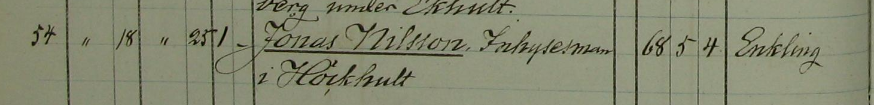 berg under Ekhult.
54 " 18 " 251 Jonas Nilsson. Inhysesman 68 5 4 Enkling
i Höckhult